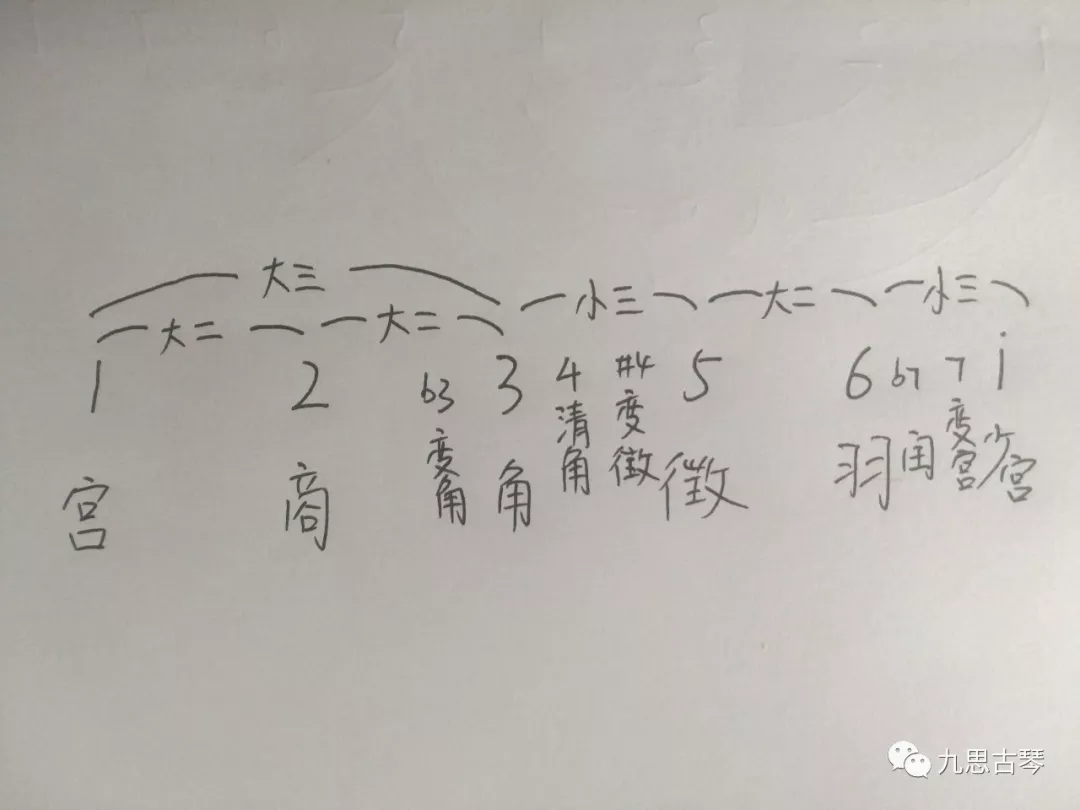 大三
大二 大二 小三 大二 小三
1 2 b3 3 4 #4 5 6 b7 7 i
宫 商 变角 角 清角 变徵 徵 羽 闰 变宫 少宫
九思古琴